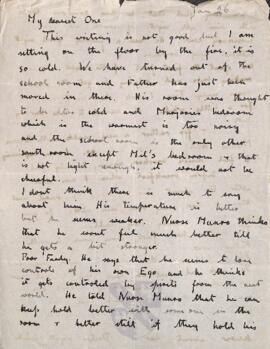 Jan 26
My dearest One
This writing is not good but I am
sitting on the floor by the fire, it is
so cold. We have turned out of the
school room and Father has just been
moved in there. His room was thought
to be too cold and Marjories bedroom
which is the warmest is too noisy
and the school room is the only other
south room except Mil's bedroom & that
is not light enough, it would not be
cheerful.
I dont think there is much to say
about him. His temperature is better
but he seems weaker. Nurse Munro thinks
that he wont feel much better till
he gets a bit stronger.
Poor Fardy. He says that he seems to lose
controls of his own Ego and he thinks
it gets controlled by spirits from the next
world. He told Nurse Munro that he can
keep hold better with someone in the
room & better still if they hold his